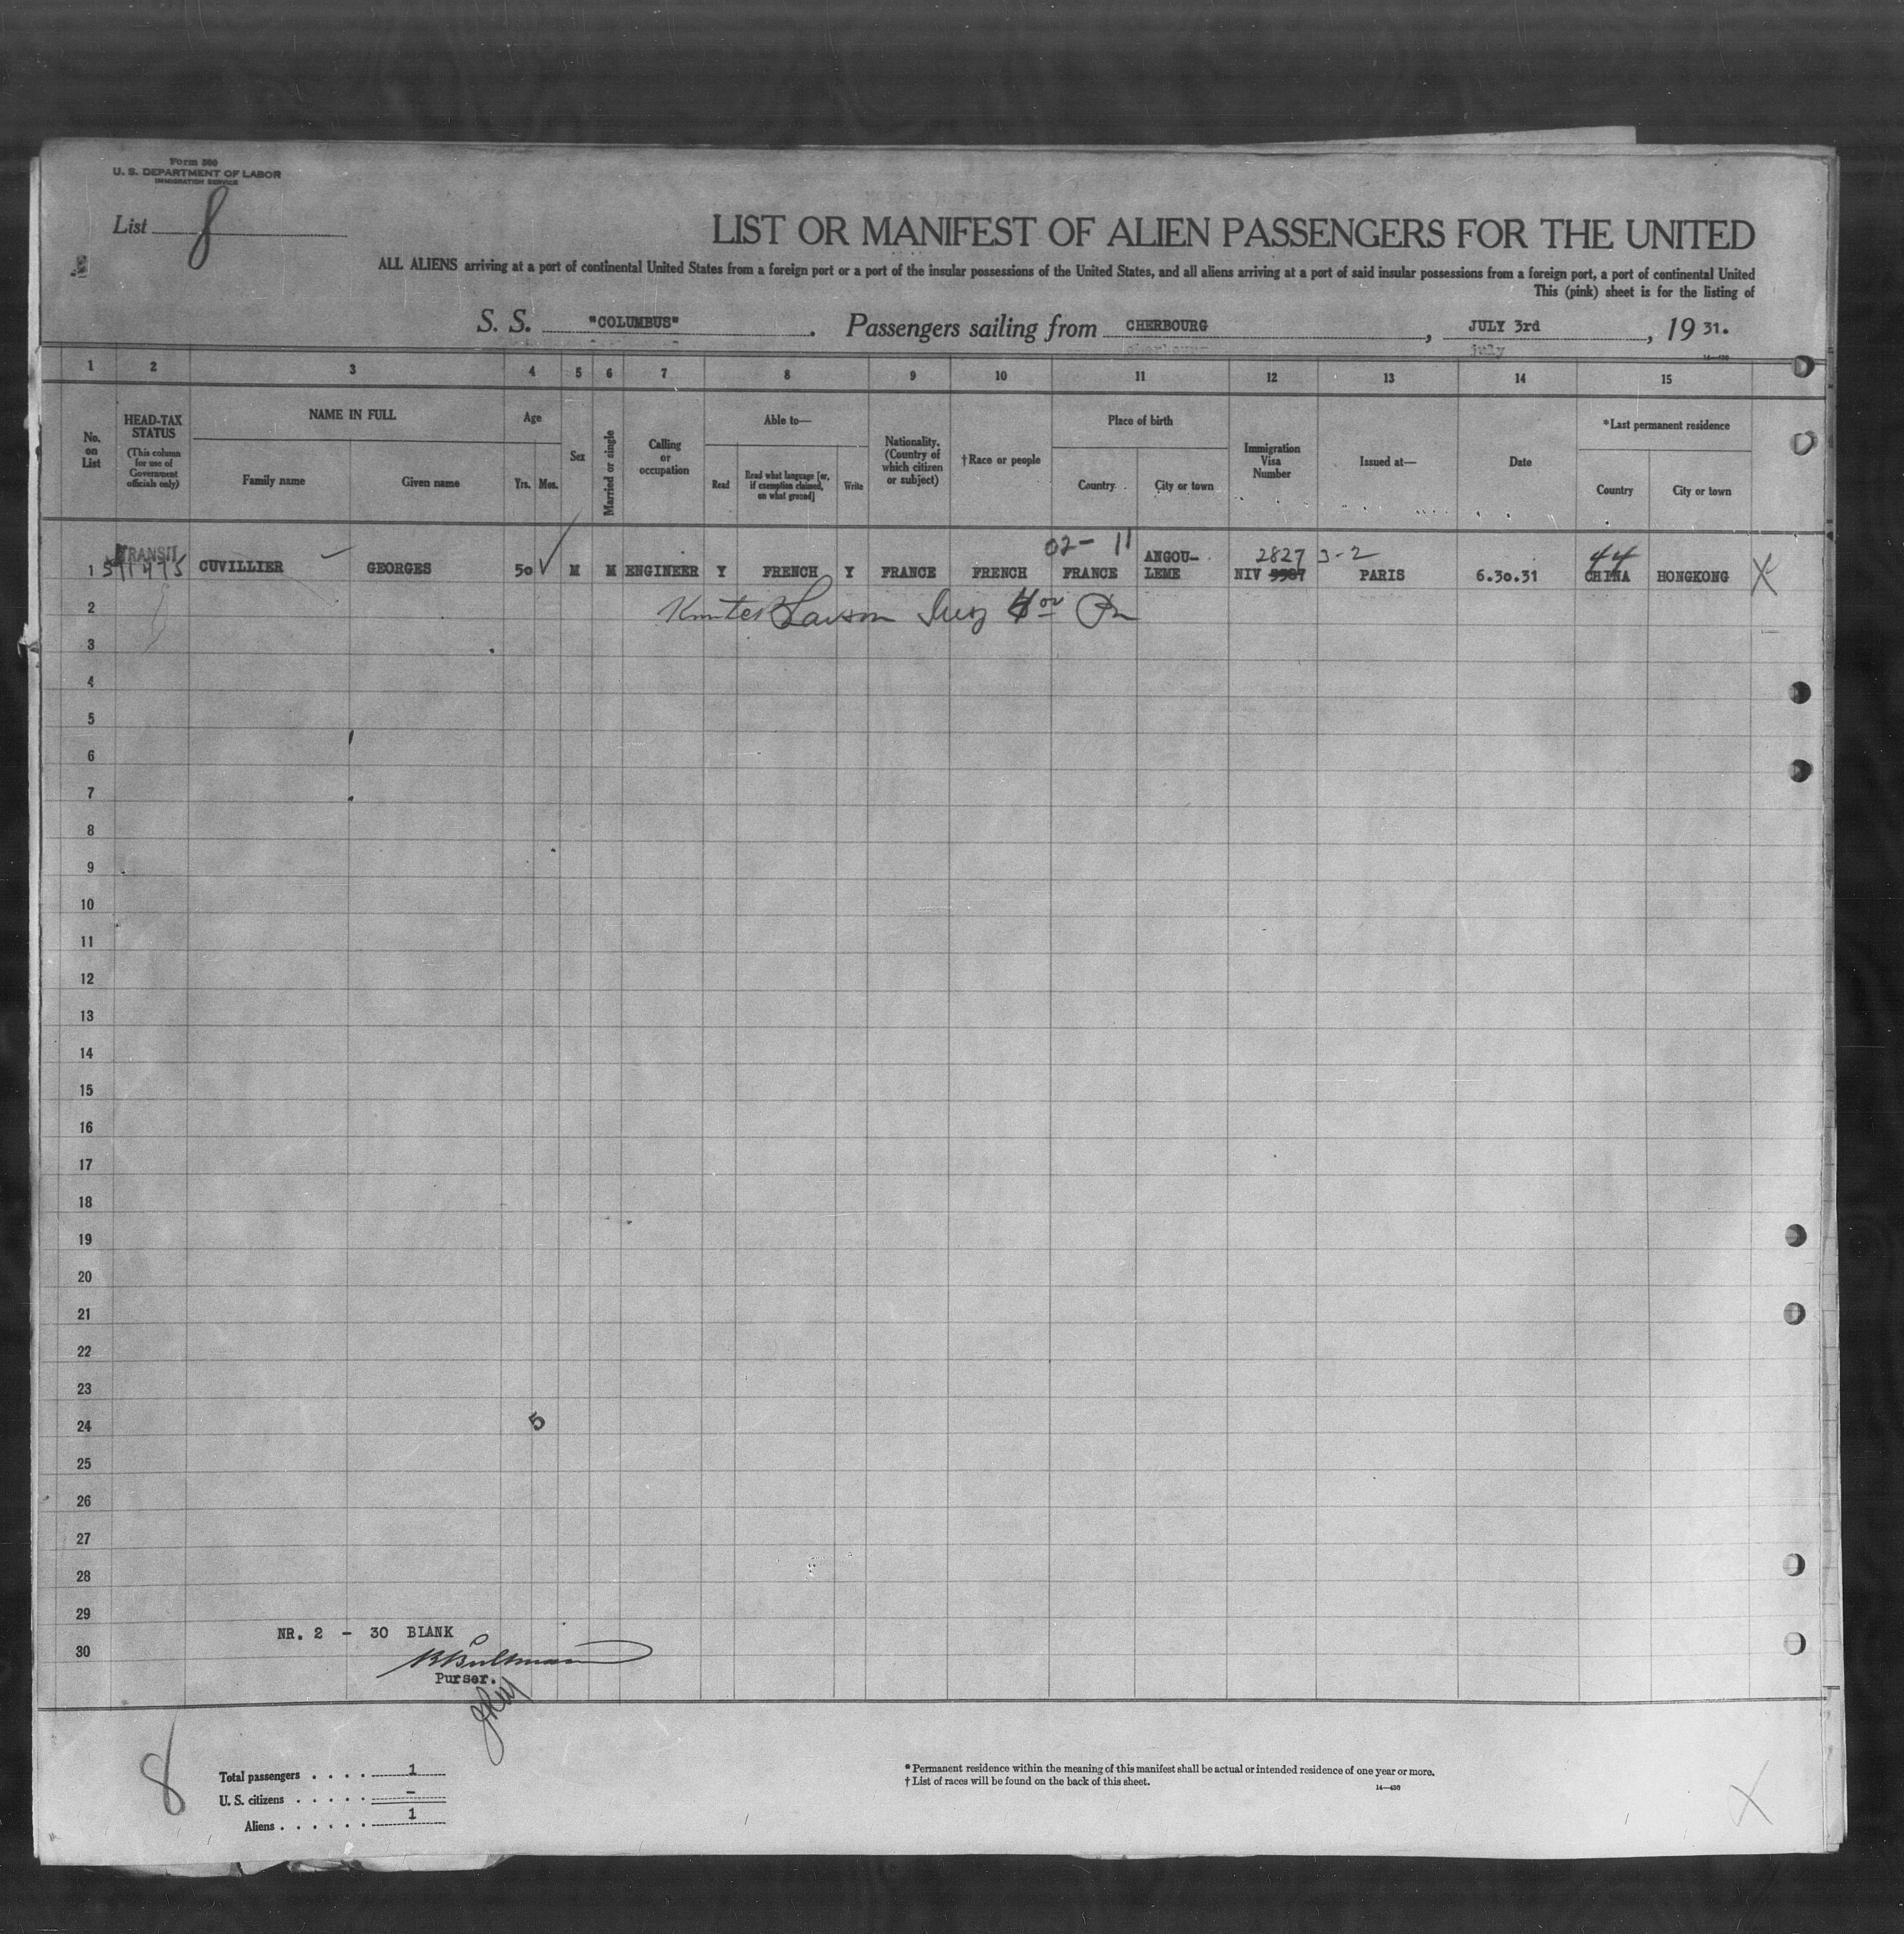 Form 500
U. S. DEPARTMENT OF LABOR
IMMIGRATION SERVICE
List 8
LIST OR MANIFEST OF ALIEN PASSENGERS FOR THE UNITED
ALL ALIENS arriving at a port of continental United States from a foreign port or a port of the insular possessions of the United States, and all aliens arriving at a port of said insular possessions from a foreign port, a port of continental United
This (pink) sheet is for the listing of
S. S. "COLUMBUS". Passengers sailing from CHERBOURG, JULY 3rd, 19 31.
14—430
1 2 3 4 5 6 7 8 9 10 11 12 13 14 15
No. on List
HEAD-TAX STATUS
(This column for use of Government officials only)
NAME IN FULL
Family name
Given name
Age
Yrs.
Mos.
Sex
Married or single
Calling or occupation
Able to—
Read
Read what language [or, if exemption claimed, on what ground]
Write
Nationality. (Country of which citizen or subject)
† Race or people
Place of birth
Country
City or town
Immigration Visa Number
Issued at—
Date
*Last permanent residence
Country
City or town
02- 11
1 TRANSIT CUVILLIER GEORGES 50 M M ENGINEER Y FRENCH Y FRANCE FRENCH FRANCE ANGOU-LEME 2827 NIV 3-2 PARIS 6.30.31 44 CHINA HONGKONG X
2 Lawson
3
4
5
6
7
8
9
10
11
12
13
14
15
16
17
18
19
20
21
22
23
24 5
25
26
27
28
29
NR. 2 - 30 BLANK
30
Purser.
8
Total passengers . . . . . 1
U. S. citizens . . . . . –
Aliens . . . . . . 1
* Permanent residence within the meaning of this manifest shall be actual or intended residence of one year or more.
† List of races will be found on the back of this sheet.
14—430
X